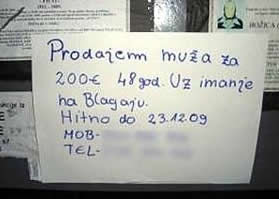 Prodajem muža za
200€ 48 god. Uz imanje
na Blagaju.
Hitno do 23.12.09
MOB-
TEL-